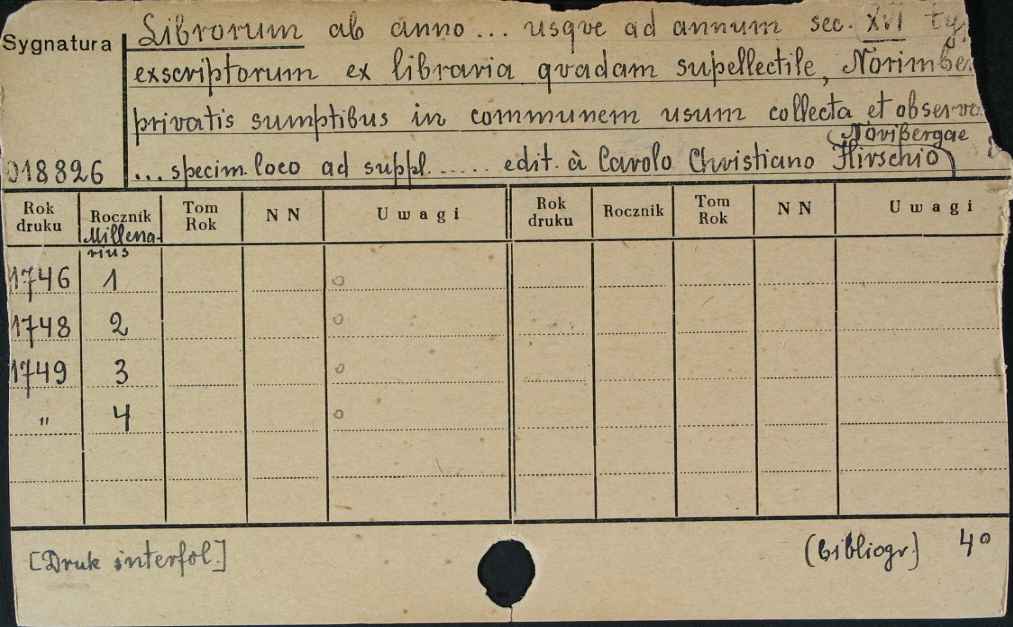 Sygnatura
Librorum ab anno ... usque ad annum sec. XVI ty
exscriptorum ex libraria qvadam supellectile, Norimbe
privatis sumptibus in communem usum collecta et observa
Novißergae
018826
... specim. loco ad suppl. ...... edit. à Carolo Christiano Hirschio
Rok druku Rocznik Tom Rok N N Uwagi Rok druku Rocznik Tom Rok N N Uwagi
Millena-
rius
1746 1 o
1748 2 o
1749 3 o
" 4 o
[Druk interfol.] (bibliogr.) 4o